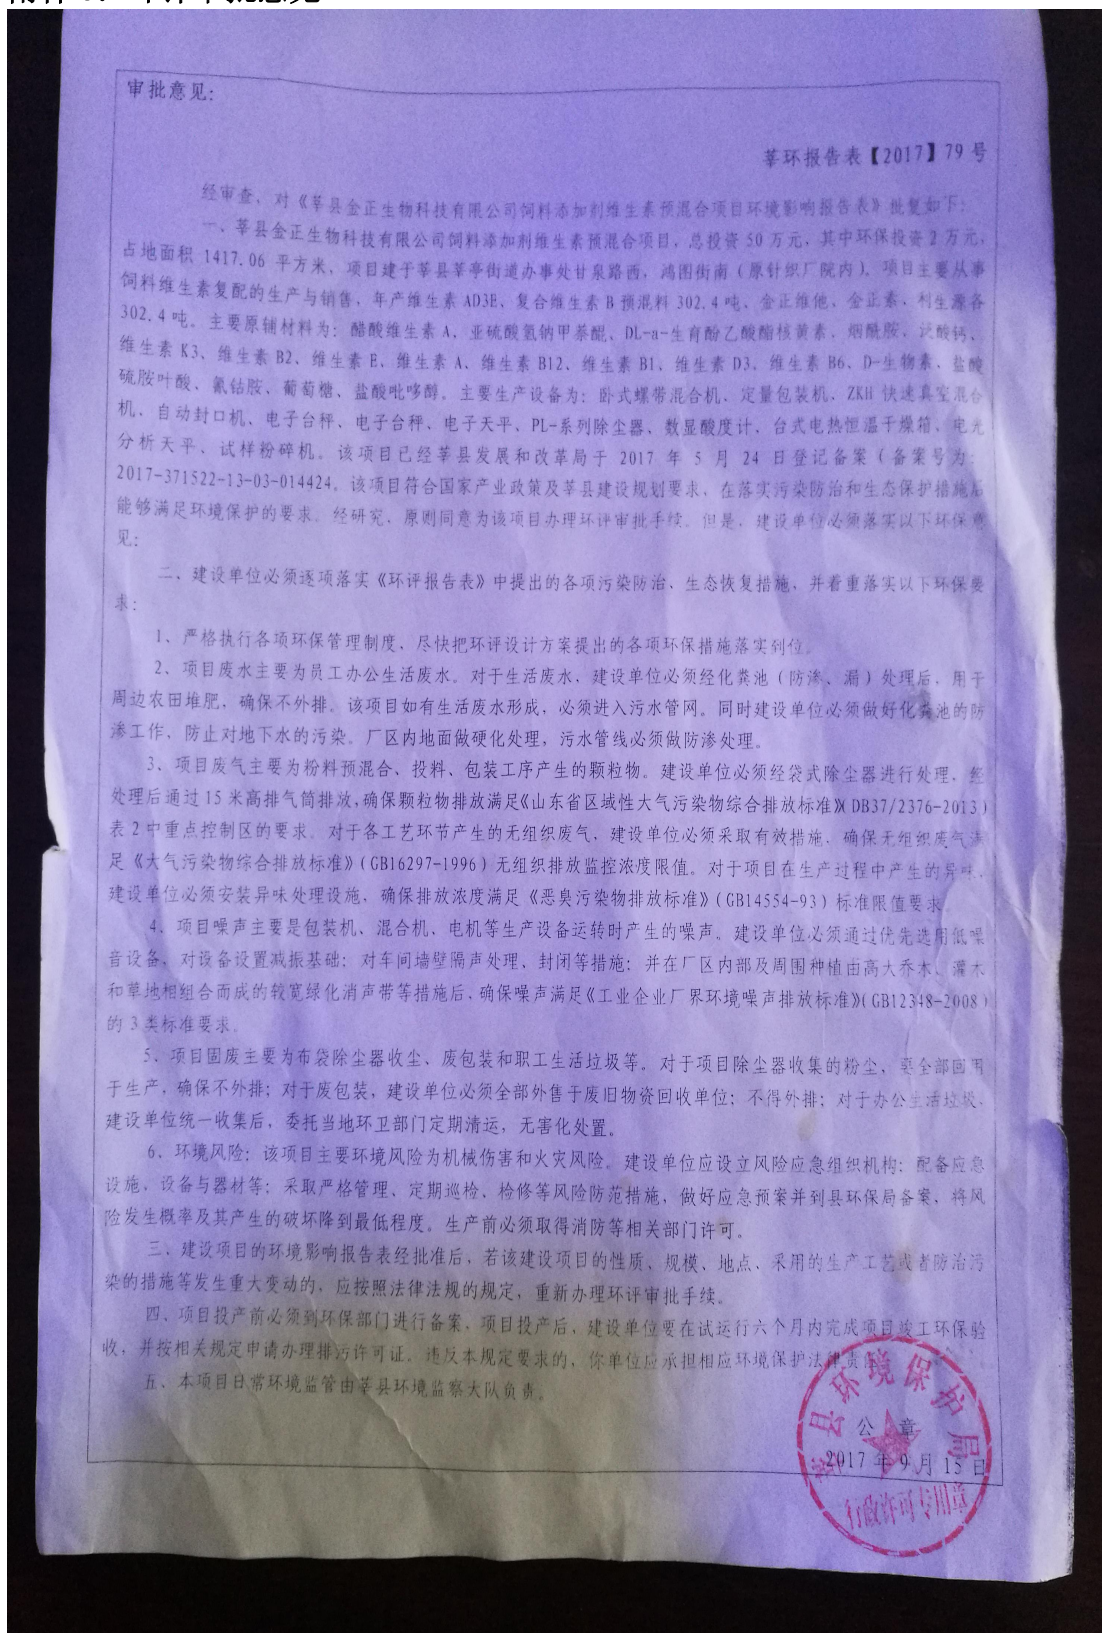 审批意见:
莘环报告表【2017】79号
经审查、对《莘县金正生物科技有限公司饲料添加剂维生素预混合项目环境影响报告表》批复如下:
一、莘县金正生物科技有限公司饲料添加剂维生素预混合项目，总投资50万元，其中环保投资2万元，
占地面积 1417.06 平方米，项目建于莘县莘亭街道办事处甘泉路西，鸿图街南（原针织厂院内）。项目主要从事
饲料维生素复配的生产与销售，年产维生素AD3E、复合维生素B预混料302.4吨、金正维他、金正素、利生源各
302.4吨。主要原辅材料为：醋酸维生素A、亚硫酸氢钠甲萘醌、DL-a-生育酚乙酸酯核黄素、烟酰胺、泛酸钙、
维生素K3、维生素B2、维生素E、维生素A、维生素B12、维生素B1、维生素D3、维生素B6、D-生物素、盐酸
硫胺叶酸、氰钴胺、葡萄糖、盐酸吡哆醇。主要生产设备为：卧式螺带混合机、定量包装机、ZKH 快速真空混合
机、自动封口机、电子台秤、电子台秤、电子天平、PL-系列除尘器、数显酸度计、台式电热恒温干燥箱、电光
分析天平、试样粉碎机。该项目已经莘县发展和改革局于 2017 年 5 月 24 日登记备案（备案号为：
2017-371522-13-03-014424。该项目符合国家产业政策及莘县建设规划要求，在落实污染防治和生态保护措施后
能够满足环境保护的要求。经研究，原则同意为该项目办理环评审批手续。但是，建设单位必须落实以下环保意
见：
二、建设单位必须逐项落实《环评报告表》中提出的各项污染防治、生态恢复措施，并着重落实以下环保要
求：
1、严格执行各项环保管理制度，尽快把环评设计方案提出的各项环保措施落实到位。
2、项目废水主要为员工办公生活废水。对于生活废水，建设单位必须经化粪池（防渗、漏）处理后，用于
周边农田堆肥，确保不外排。该项目如有生活废水形成，必须进入污水管网。同时建设单位必须做好化粪池的防
渗工作，防止对地下水的污染。厂区内地面做硬化处理，污水管线必须做防渗处理。
3、项目废气主要为粉料预混合、投料、包装工序产生的颗粒物。建设单位必须经袋式除尘器进行处理，经
处理后通过15米高排气筒排放,确保颗粒物排放满足《山东省区域性大气污染物综合排放标准》(DB37/2376-2013)
表2中重点控制区的要求。对于各工艺环节产生的无组织废气，建设单位必须采取有效措施，确保无组织废气满
足《大气污染物综合排放标准》(GB16297-1996)无组织排放监控浓度限值。对于项目在生产过程中产生的异味，
建设单位必须安装异味处理设施，确保排放浓度满足《恶臭污染物排放标准》(GB14554-93)标准限值要求。
4、项目噪声主要是包装机、混合机、电机等生产设备运转时产生的噪声。建设单位必须通过优先选用低噪
音设备，对设备设置减振基础；对车间墙壁隔声处理、封闭等措施；并在厂区内部及周围种植由高大乔木、灌木
和草地相组合而成的较宽绿化消声带等措施后，确保噪声满足《工业企业厂界环境噪声排放标准》(GB12348-2008)
的3类标准要求。
5、项目固废主要为布袋除尘器收尘、废包装和职工生活垃圾等。对于项目除尘器收集的粉尘，要全部回用
于生产，确保不外排；对于废包装，建设单位必须全部外售于废旧物资回收单位；不得外排；对于办公生活垃圾，
建设单位统一收集后，委托当地环卫部门定期清运，无害化处置。
6、环境风险：该项目主要环境风险为机械伤害和火灾风险。建设单位应设立风险应急组织机构；配备应急
设施、设备与器材等；采取严格管理、定期巡检、检修等风险防范措施，做好应急预案并到县环保局备案，将风
险发生概率及其产生的破坏降到最低程度。生产前必须取得消防等相关部门许可。
三、建设项目的环境影响报告表经批准后，若该建设项目的性质、规模、地点、采用的生产工艺或者防治污
染的措施等发生重大变动的，应按照法律法规的规定，重新办理环评审批手续。
四、项目投产前必须到环保部门进行备案，项目投产后，建设单位要在试运行六个月内完成项目竣工环保验
收，并按相关规定申请办理排污许可证。违反本规定要求的，你单位应承担相应环境保护法律责
五、本项目日常环境监管由莘县环境监察大队负责。
公 章
2017年9月15日
莘县环境保护局
行政许可专用章